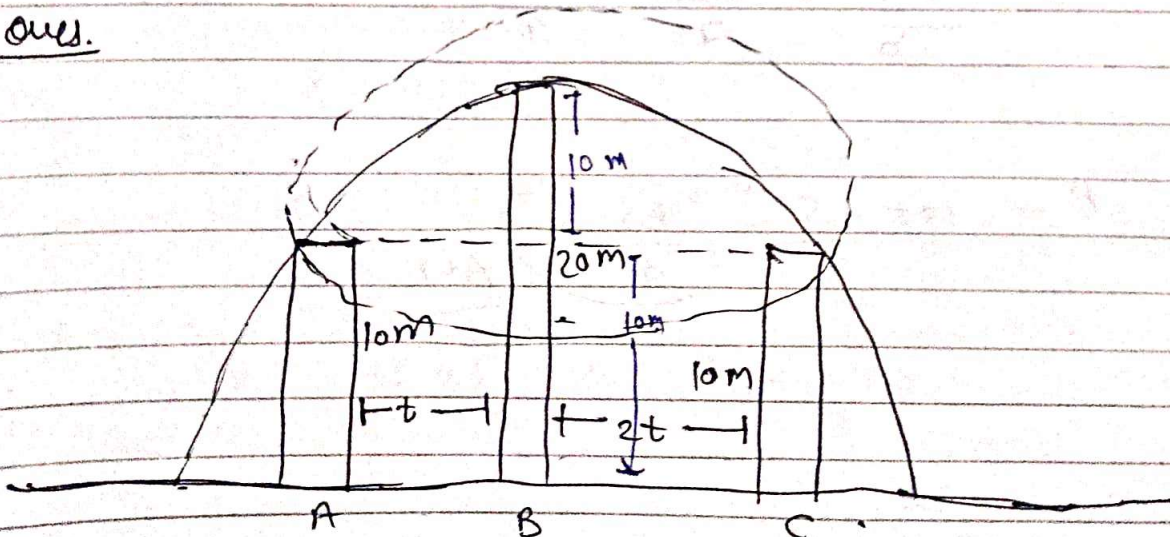 Ques.
10 m
20m
10m
10m
10 m
t
2t
A B C